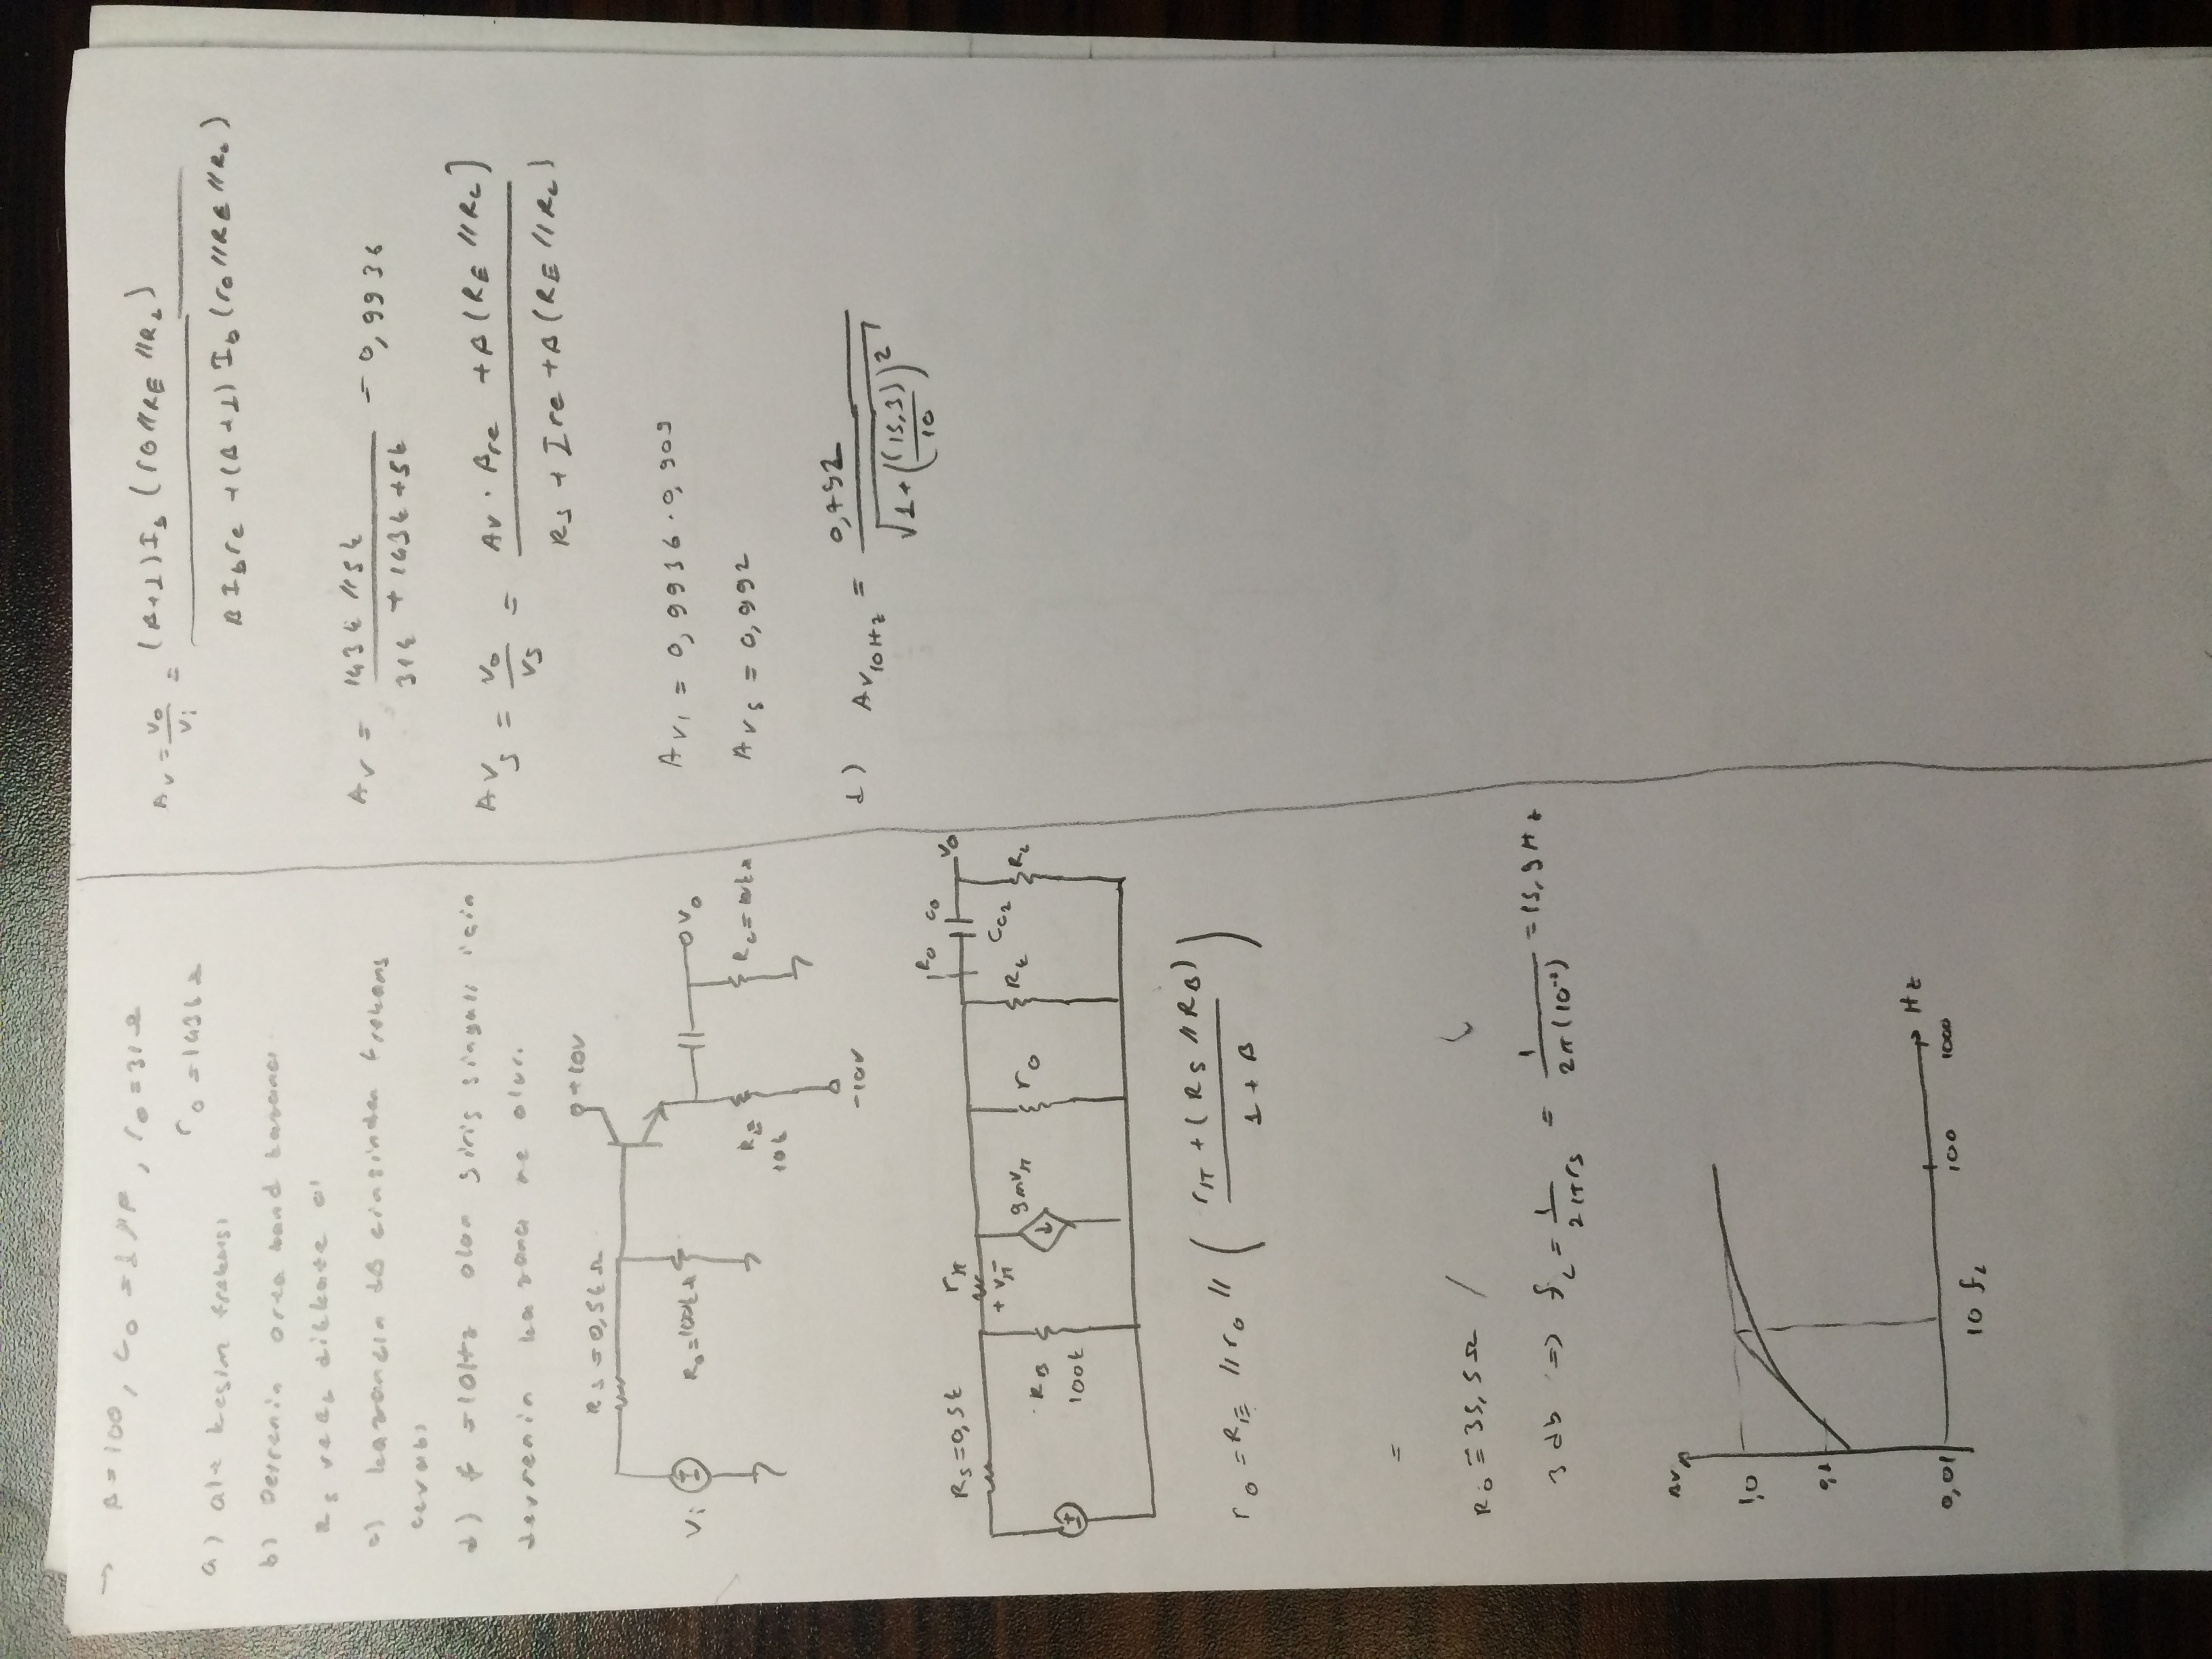 → β = 100, C0 = 1 μF, r0 = 31 Ω
r0 = 143k Ω
a) alt kesim frekansı
b) Devrenin orta band kazancı
Rs ve RL dikkate al
c) kazancın dB cinsinden frekans
cevabı
d) f = 10Hz olan giriş sinyali için
devrenin kazancı ne olur.
+10V
Rs = 0,5k Ω
Vi
RB = 100k Ω
Vo
RE
10k
RL = 10k Ω
-10V
Rs = 0,5k
rπ
+ Vπ -
gmVπ
RB
100k
ro
RE
Ro
Co
Cc2
Vo
RL
ro = RE // ro // ( rπ + (Rs // RB) / 1 + β )
=
Ro ≅ 35,5 Ω /
3 db => fL = 1 / 2πrs = 1 / 2π(10⁻²) = 15,9 Hz
Av
1,0
0,1
0,01
10 fL
100
1000
Hz
Av = Vo / Vi = (β+1) Ib (ro // RE // RL) / β Ib re + (β+1) Ib (ro // RE // RL)
Av = 143k // 5k / 31k + 143k + 5k = 0,9936
AVs = Vo / Vs = Av · βre + β(RE // RL) / Rs + Ire + β(RE // RL)
Av1 = 0,9936 · 0,909
Avs = 0,992
d) Av10Hz = 0,792 / √1 + ((15,3) / 10)²